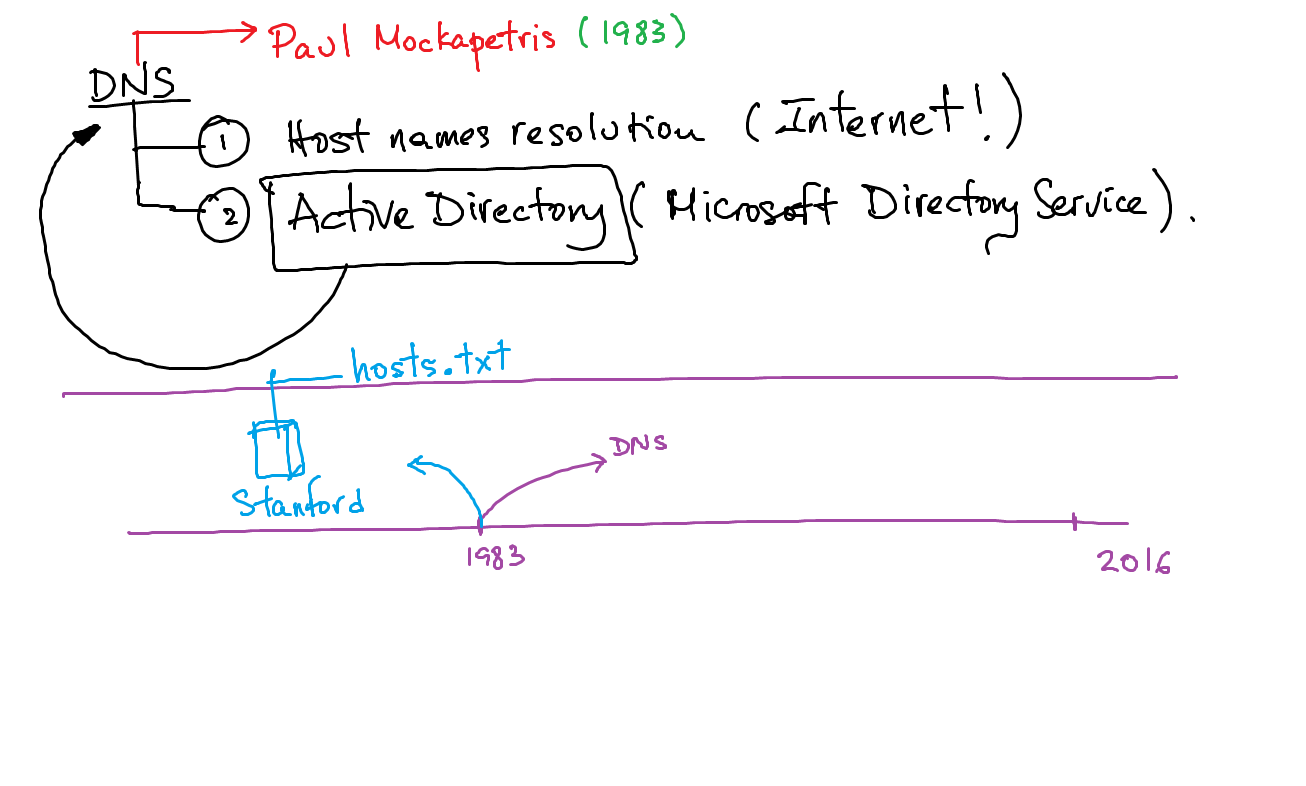 Paul Mockapetris (1983)
DNS
1 Host names resolution (Internet!)
2 Active Directory (Microsoft Directory Service).
hosts.txt
DNS
Stanford
1983
2016